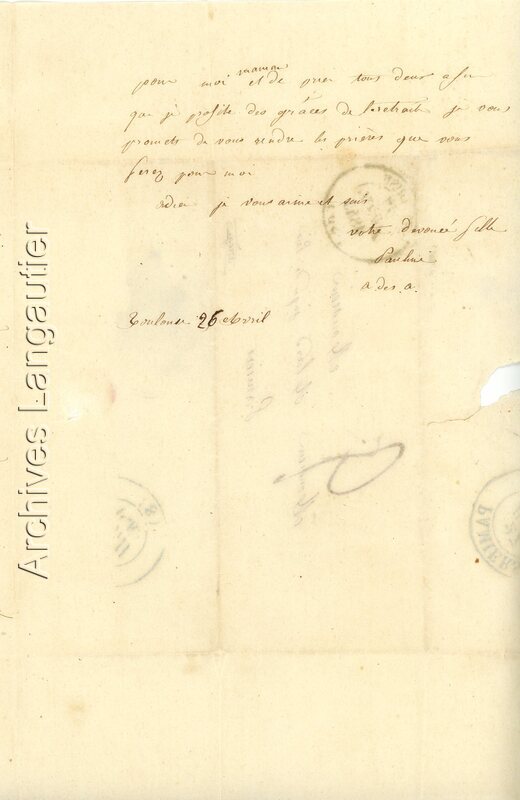 maman
pour moi et de prier tous deux afin
que je profite des grâces de la retraite je vous
promets de vous rendre les prières que vous
ferez pour moi
adieu je vous aime et suis
votre dévouée fille
Pauline
a des a.
Toulouse 26 Avril
Archives Langautier
PAMIERS